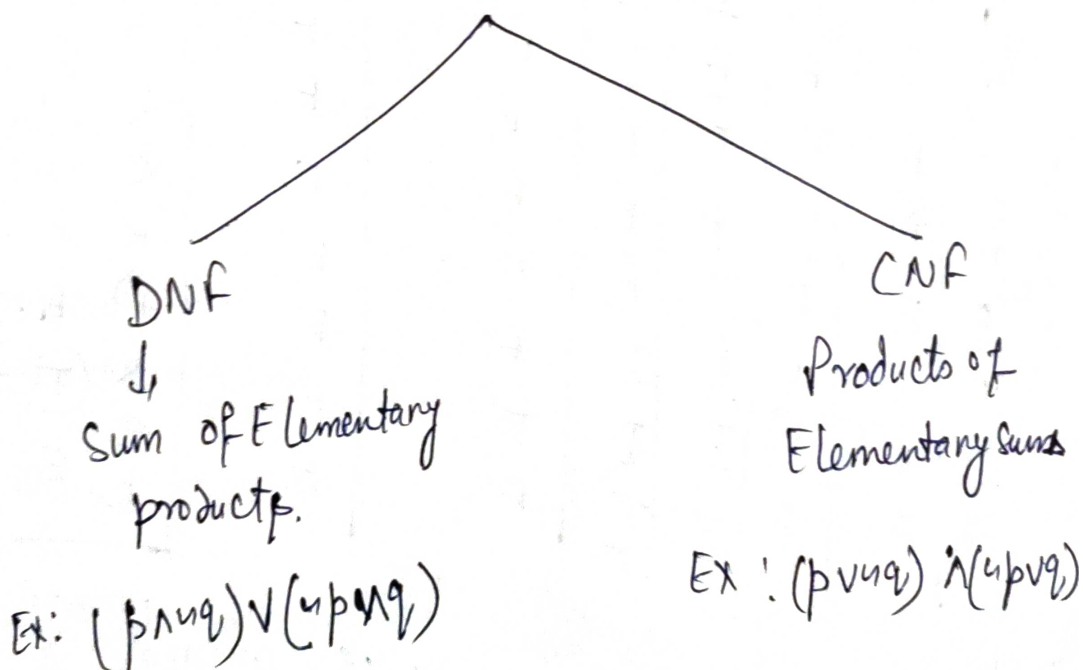 DNF
↓
Sum of Elementary
products.
Ex: (p∧~q)∨(~p∧q)
CNF
Products of
Elementary Sums
Ex: (p∨~q) ∧(~p∨q)